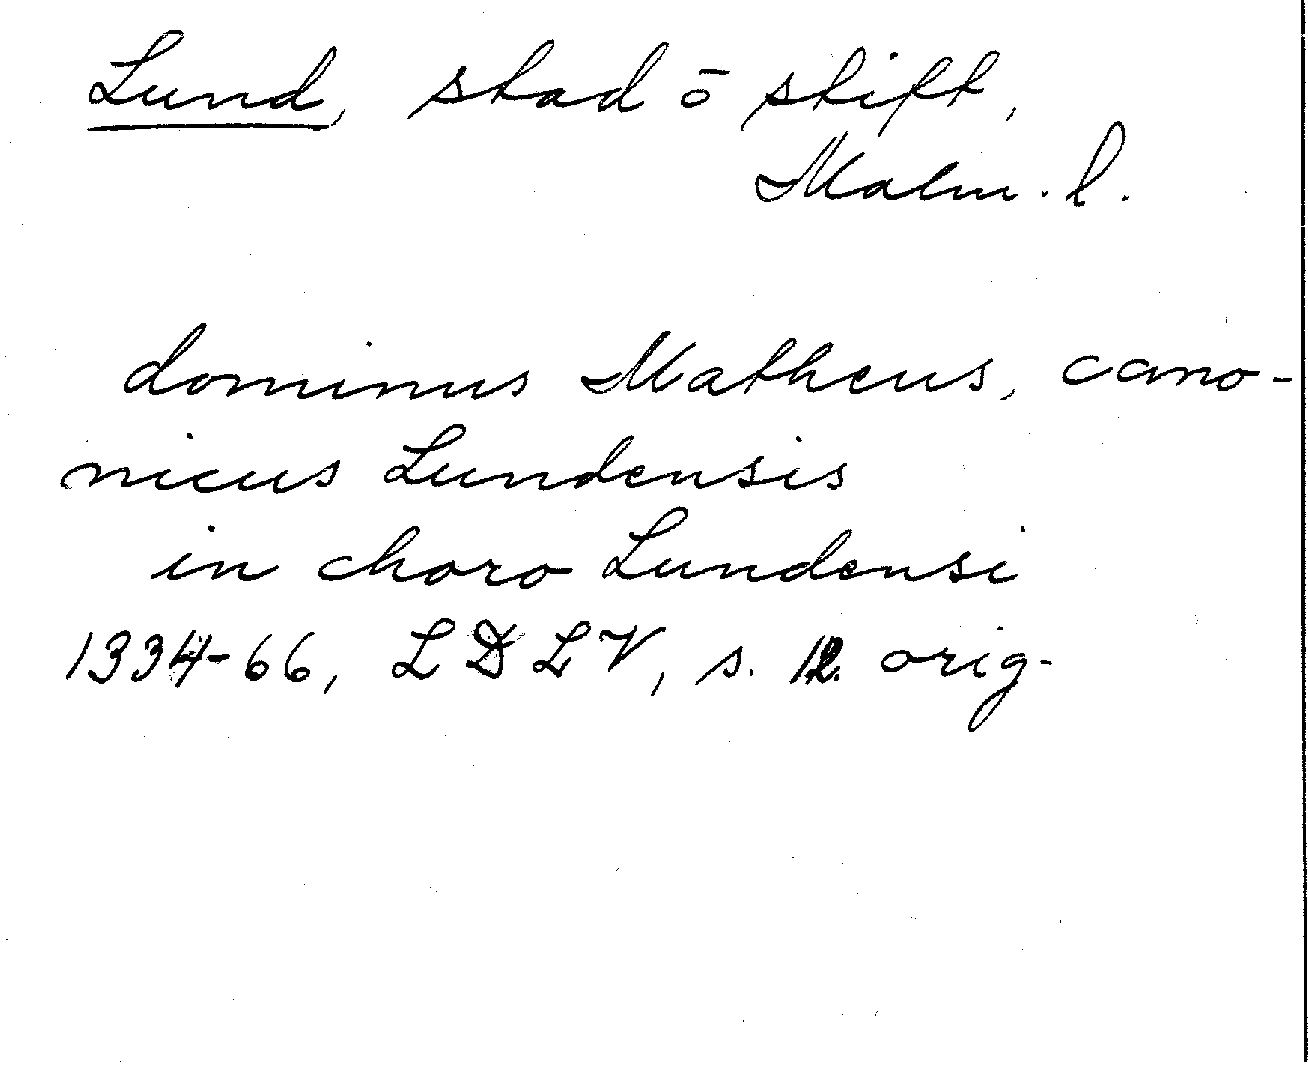 Lund, stad ō stift,
Malm. l.
dominus Matheus, cano-
nicus Lundensis
in choro Lundensi
1334-66, LDLV, s. 12. orig.